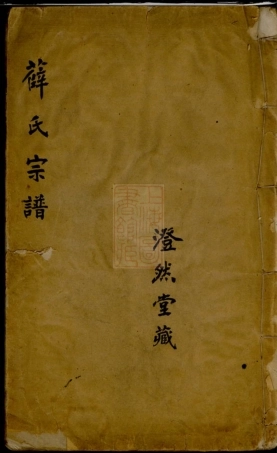 薛氏宗譜
澄然堂藏